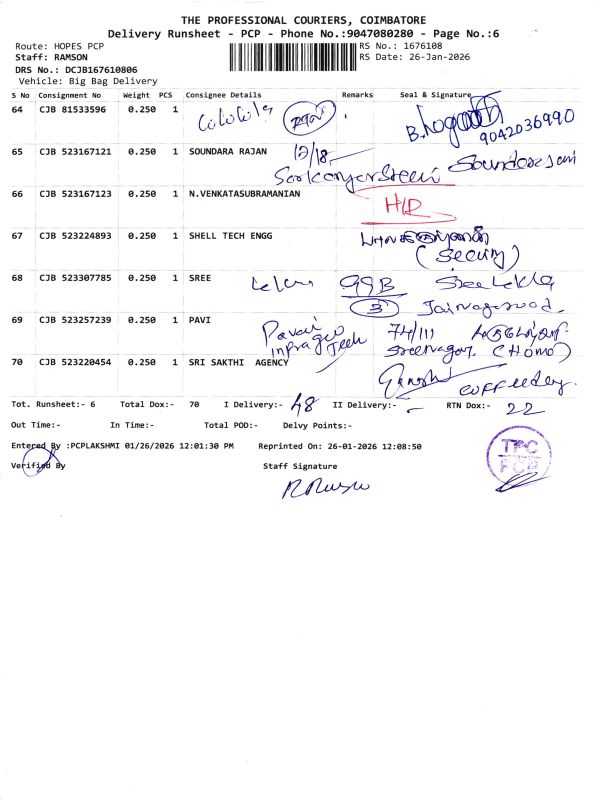 THE PROFESSIONAL COURIERS, COIMBATORE
Delivery Runsheet - PCP - Phone No.:9047080280 - Page No.:6
Route: HOPES PCP
Staff: RAMSON
DRS No.: DCJB167610806
Vehicle: Big Bag Delivery
RS No.: 1676108
RS Date: 26-Jan-2026
S No Consignment No Weight PCS Consignee Details Remarks Seal & Signature
64 CJB 81533596 0.250 1
9042036990
65 CJB 523167121 0.250 1 SOUNDARA RAJAN 12/18
66 CJB 523167123 0.250 1 N.VENKATASUBRAMANIAN
67 CJB 523224893 0.250 1 SHELL TECH ENGG
68 CJB 523307785 0.250 1 SREE
3
69 CJB 523257239 0.250 1 PAVI
Pavai 74/111
Infra Tech Sreenagar, (Homo)
70 CJB 523220454 0.250 1 SRI SAKTHI AGENCY
Tot. Runsheet:- 6 Total Dox:- 70 I Delivery:- 48 II Delivery:- - RTN Dox:- 22
Out Time:- In Time:- Total POD:- Delvy Points:-
Entered By :PCPLAKSHMI 01/26/2026 12:01:30 PM Reprinted On: 26-01-2026 12:08:50
Verified By Staff Signature
TPC
PCP